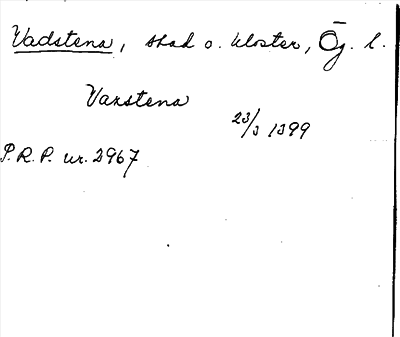 Vadstena, stad o. kloster, Ög. l.
Vaxstena
23/3 1399
P.R.P. nr. 2967